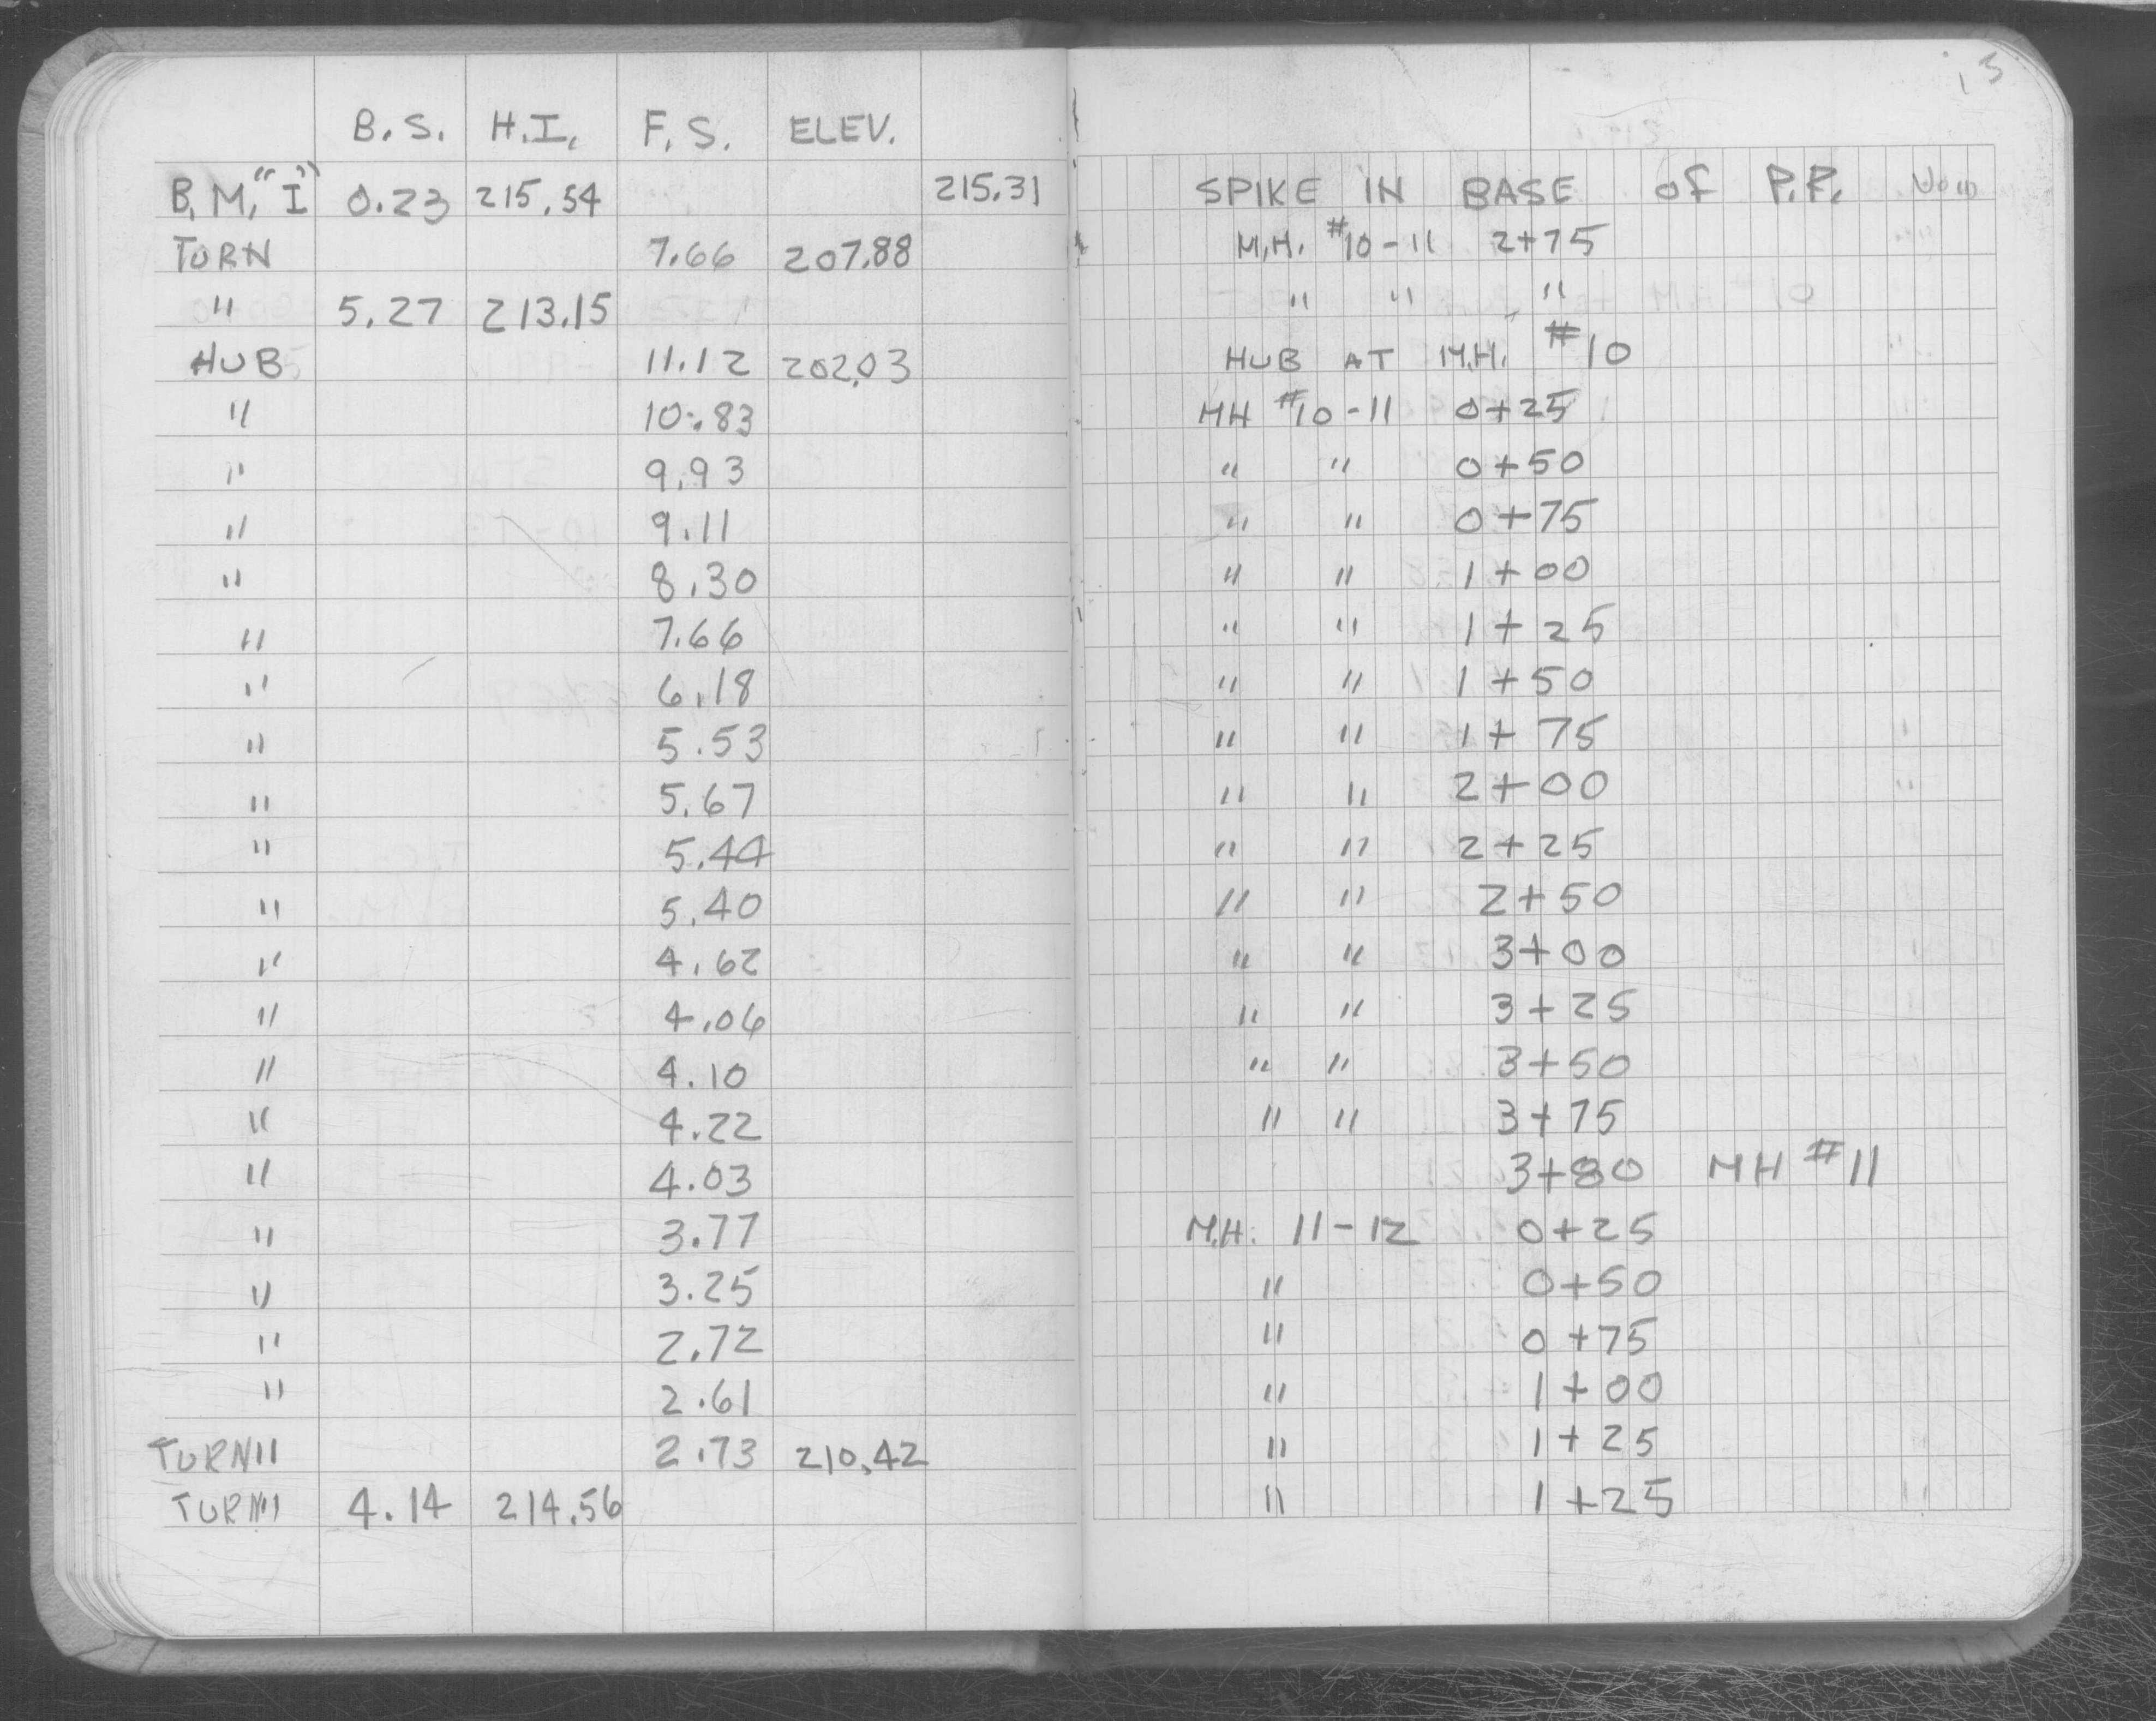 13
B.S. H.I. F.S. ELEV.
B.M. "I" 0.23 215.54 215.31 SPIKE IN BASE of P.P.
TURN 7.66 207.88 M.H. #10-11 2+75
" 5.27 213.15 " " "
HUB 11.12 202.03 HUB AT M.H. #10
" 10.83 MH #10-11 0+25
" 9.93 " " 0+50
" 9.11 " " 0+75
" 8.30 " " 1+00
" 7.66 " " 1+25
" 6.18 " " 1+50
" 5.53 " " 1+75
" 5.67 " " 2+00
" 5.44 " " 2+25
" 5.40 " " 2+50
" 4.62 " " 3+00
" 4.06 " " 3+25
" 4.10 " " 3+50
" 4.22 " " 3+75
" 4.03 3+80 MH #11
" 3.77 M.H. 11-12 0+25
" 3.25 " 0+50
" 2.72 " 0+75
" 2.61 " 1+00
TURN" 2.73 210.42 " 1+25
TURN" 4.14 214.56 " 1+25